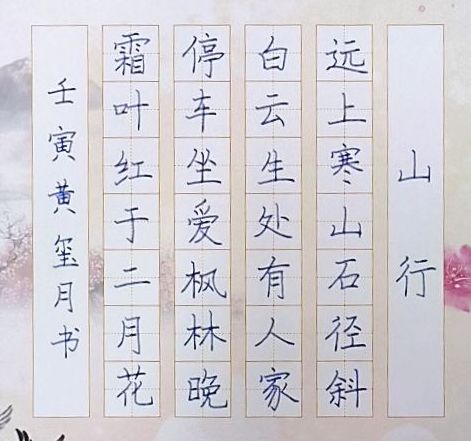 山行
远上寒山石径斜
白云生处有人家
停车坐爱枫林晚
霜叶红于二月花
壬寅黄玺月书